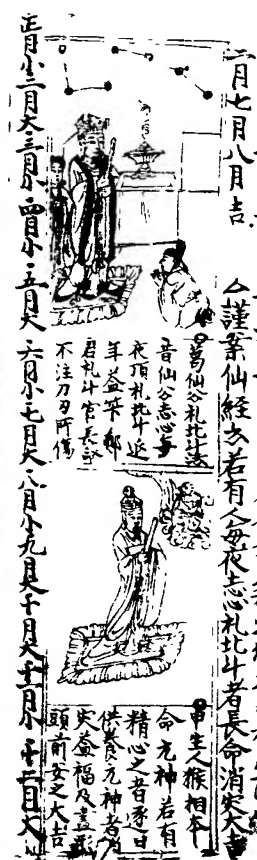 二月七月八月吉
謹案仙経云若有人每夜志心礼北斗者長命消灾大吉
葛仙公礼北斗法
昔仙公志心每
夜頂礼北斗延
年益筭鄭
君礼斗官長命
不注刀刃所傷
申生人猴相本
命元神若有
精心之者逐日
供養元神者消
灾益福及畫形
頭前安之大吉
正月小二月大三月小四月小五月大六月小七月大八月小九月大十月大十一月小十二月大